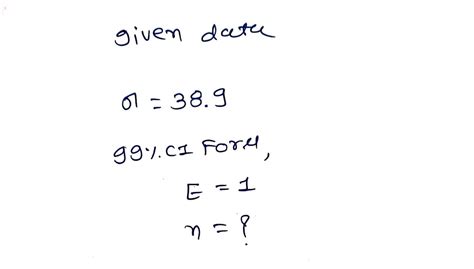 given data
σ = 38.9
99% CI For μ,
E = 1
n = ?